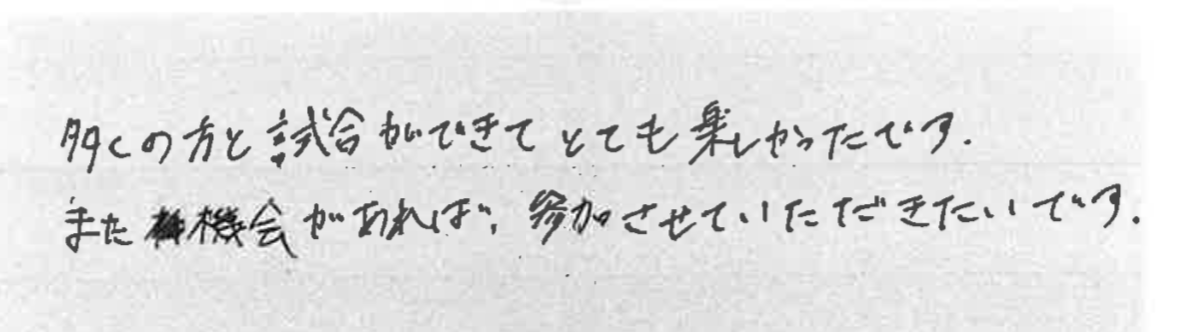 多くの方と試合ができてとても楽しかったです.
また機会があれば、参加させていただきたいです.